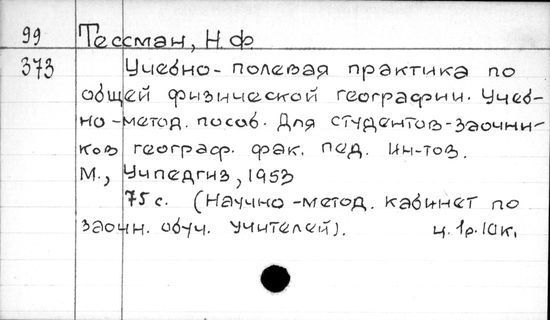 99 Тессман, Н.Ф
373 Учебно-полевая практика по
общей физической географии. Учеб-
но-метод. пособ. Для студентов-заочни-
ков географ. фак. пед. ин-тов.
М., Учпедгиз, 1953
75 с. (Научно-метод. кабинет по
заочн. обуч. учителей). ц. 1р. 10к.